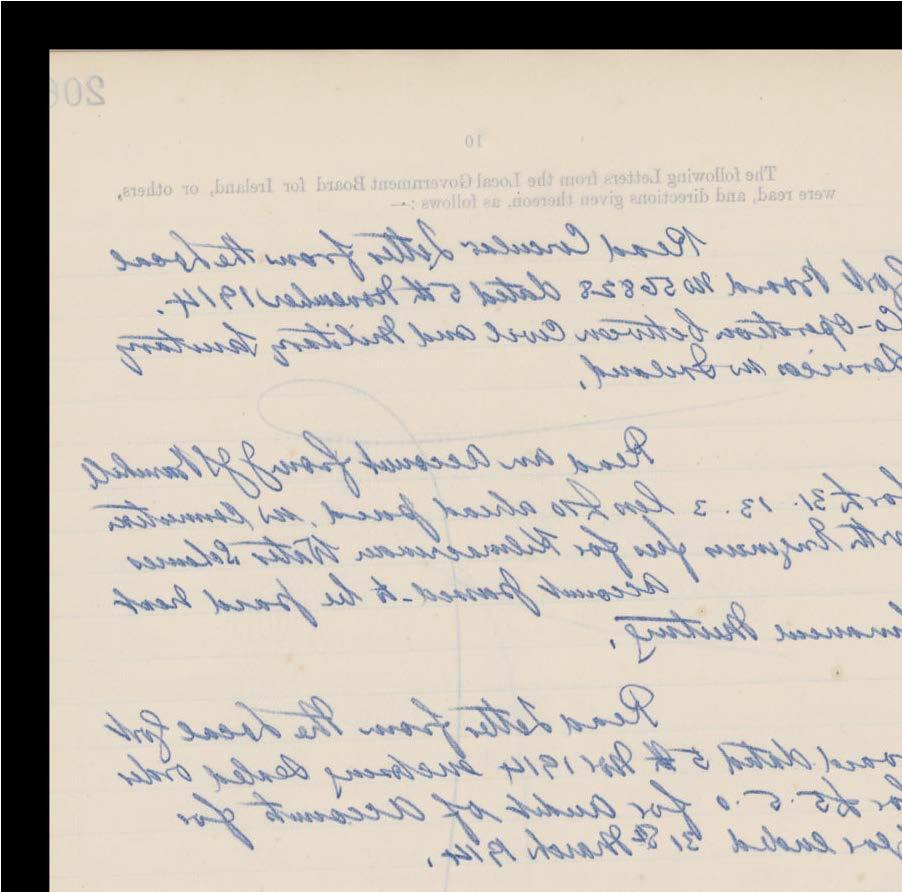 20
10
The following Letters from the Local Government Board for Ireland, or others,
were read, and directions given thereon, as follows :—
Read Circular Letter from the Local
Govt Board No 56828 dated 5th November 1914.
Co-operation between Civil and Military Sanitary
Services in Ireland.
Read an account from
for £31. 13. 3 less £10 already paid in connection
with Engineers fees for Water Scheme
Account passed - to be paid next
Finance Meeting.
Read Letter from the Local Govt
Board dated 5th Nov 1914 enclosing Sealed Order
for £5. 5. 0 for audit of accounts for
Year ended 31st March 1914.